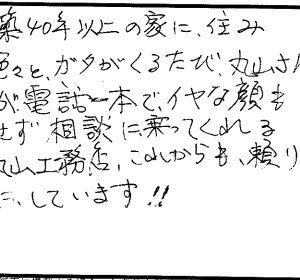 築40年以上の家に、住み
色々と、ガタがくるたび、丸山さん
が、電話一本で、イヤな顔も
せず 相談に乗ってくれる
丸山工務店、これからも、頼り
に、しています!!